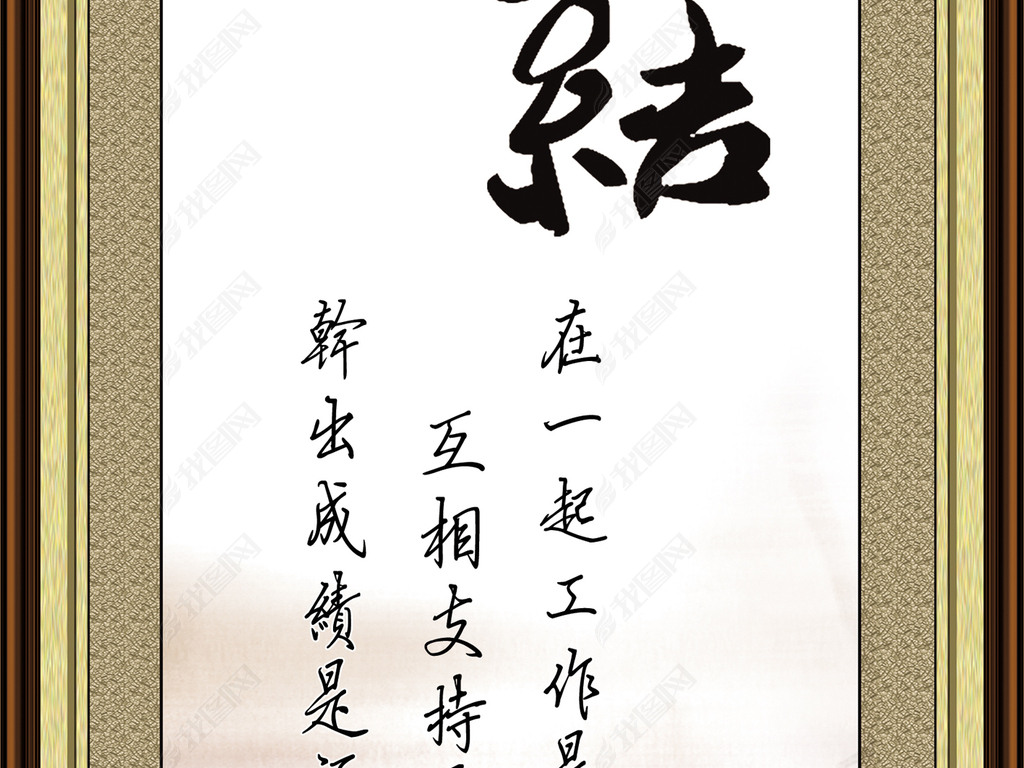 結
在一起工作是
互相支持
幹出成績是